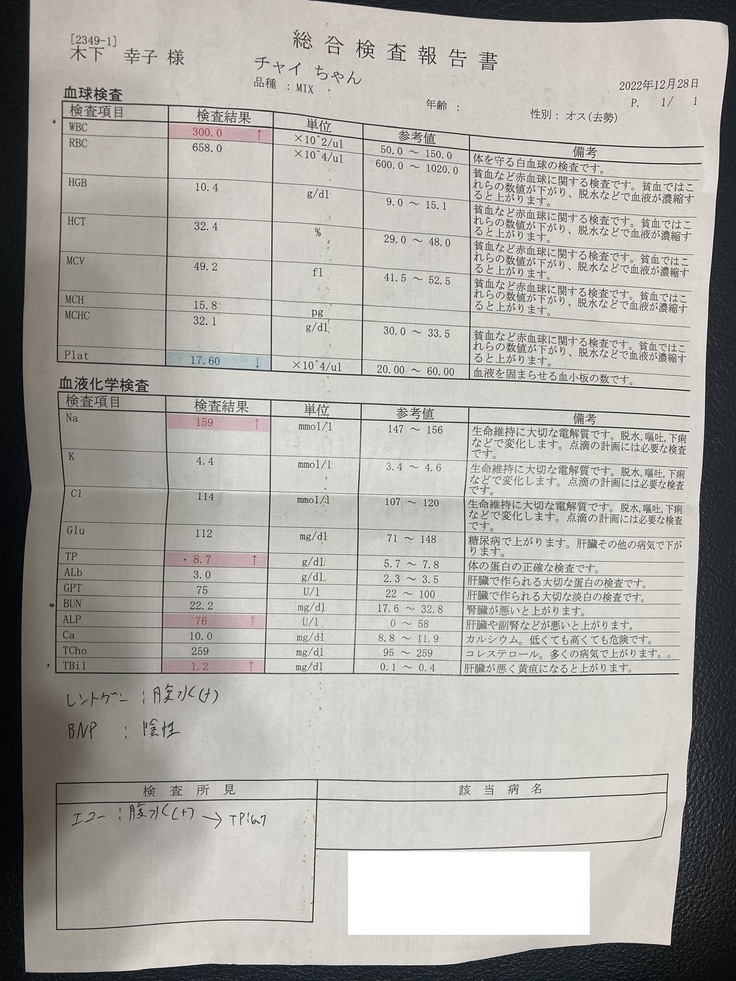 [2349-1]
木下 幸子 様
総合検査報告書
チャイ ちゃん
品種 : MIX
年齢 :
2022年12月28日
P. 1/ 1
性別 : オス(去勢)
血球検査
検査項目 検査結果 単位 参考値 備考
WBC 300.0 ↑ ×10^2/ul 50.0 ～ 150.0 体を守る白血球の検査です。
RBC 658.0 ×10^4/ul 600.0 ～ 1020.0 貧血など赤血球に関する検査です。貧血ではこ
れらの数値が下がり、脱水などで血液が濃縮す
ると上がります。
HGB 10.4 g/dl 9.0 ～ 15.1 貧血など赤血球に関する検査です。貧血ではこ
れらの数値が下がり、脱水などで血液が濃縮す
ると上がります。
HCT 32.4 % 29.0 ～ 48.0 貧血など赤血球に関する検査です。貧血ではこ
れらの数値が下がり、脱水などで血液が濃縮す
ると上がります。
MCV 49.2 fl 41.5 ～ 52.5 貧血など赤血球に関する検査です。貧血ではこ
れらの数値が下がり、脱水などで血液が濃縮す
ると上がります。
MCH 15.8 pg
MCHC 32.1 g/dl 30.0 ～ 33.5 貧血など赤血球に関する検査です。貧血ではこ
れらの数値が下がり、脱水などで血液が濃縮す
ると上がります。
Plat 17.60 ↓ ×10^4/ul 20.00 ～ 60.00 血液を固まらせる血小板の数です。
血液化学検査
検査項目 検査結果 単位 参考値 備考
Na 159 ↑ mmol/l 147 ～ 156 生命維持に大切な電解質です。脱水,嘔吐,下痢
などで変化します。点滴の計画には必要な検査
です。
K 4.4 mmol/l 3.4 ～ 4.6 生命維持に大切な電解質です。脱水,嘔吐,下痢
などで変化します。点滴の計画には必要な検査
です。
Cl 114 mmol/l 107 ～ 120 生命維持に大切な電解質です。脱水,嘔吐,下痢
などで変化します。点滴の計画には必要な検査
です。
Glu 112 mg/dl 71 ～ 148 糖尿病で上がります。肝臓その他の病気で下が
ります。
TP 8.7 ↑ g/dl 5.7 ～ 7.8 体の蛋白の正確な検査です。
ALb 3.0 g/dl 2.3 ～ 3.5 肝臓で作られる大切な蛋白の検査です。
GPT 75 U/l 22 ～ 100 肝臓で作られる大切な淡白の検査です。
BUN 22.2 mg/dl 17.6 ～ 32.8 腎臓が悪いと上がります。
ALP 76 ↑ U/l 0 ～ 58 肝臓や副腎などが悪いと上がります。
Ca 10.0 mg/dl 8.8 ～ 11.9 カルシウム。低くても高くても危険です。
TCho 259 mg/dl 95 ～ 259 コレステロール。多くの病気で上がります。。
TBil 1.2 ↑ mg/dl 0.1 ～ 0.4 肝臓が悪く黄疸になると上がります。
レントゲン : 腹水(+)
BNP : 陰性
検査所見 該当病名
エコー : 腹水(+) →